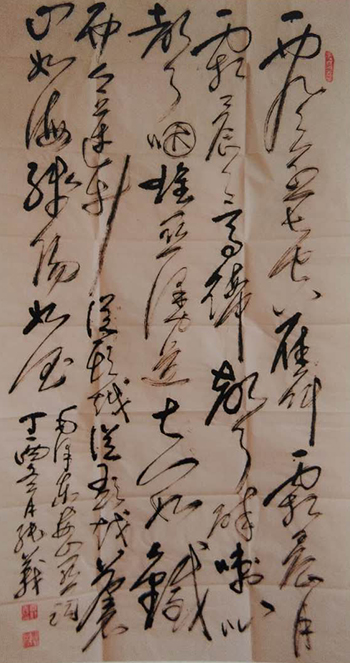 西风烈长空雁叫霜晨月
霜晨月马蹄声碎喇叭
声咽雄关漫道真如铁
而今迈步从头越从头越苍
山如海残阳如血
毛泽东娄山关词
丁酉月